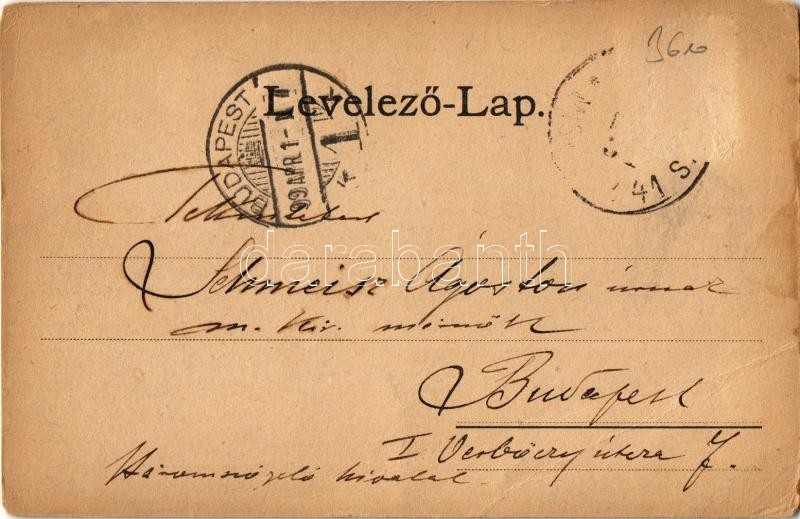 3610
Levelező-Lap.
BUDAPEST
99 APR. 1
1
41 S.
Tekintetes
Schmeisz Ágoston úrnak
m. kir. mérnök
Budapest
I Verbőczy útcza 7.
Háromszögelő hivatal.
darabanth